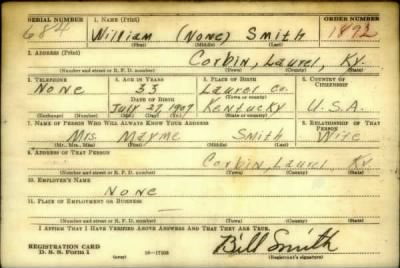 SERIAL NUMBER 1. NAME (Print) ORDER NUMBER
684 William (None) Smith 1892
(First) (Middle) (Last)
2. ADDRESS (Print)
Corbin, Laurel, Ky.
(Number and street or R. F. D. number) (Town) (County) (State)
3. TELEPHONE 4. AGE IN YEARS 5. PLACE OF BIRTH 6. COUNTRY OF CITIZENSHIP
None 33 Laurel Co.
DATE OF BIRTH (Town or county)
July 27 1907 Kentucky U.S.A.
(Exchange) (Number) (Mo.) (Day) (Yr.) (State or country)
7. NAME OF PERSON WHO WILL ALWAYS KNOW YOUR ADDRESS 8. RELATIONSHIP OF THAT PERSON
Mrs Mayme Smith Wife
(Mr., Mrs., Miss) (First) (Middle) (Last)
9. ADDRESS OF THAT PERSON
Corbin, Laurel Ky
(Number and street or R. F. D. number) (Town) (County) (State)
10. EMPLOYER'S NAME
None
11. PLACE OF EMPLOYMENT OR BUSINESS
(Number and street or R. F. D. number) (Town) (County) (State)
I AFFIRM THAT I HAVE VERIFIED ABOVE ANSWERS AND THAT THEY ARE TRUE.
REGISTRATION CARD
D. S. S. Form 1 (over) 16—17105 Bill Smith
(Registrant's signature)